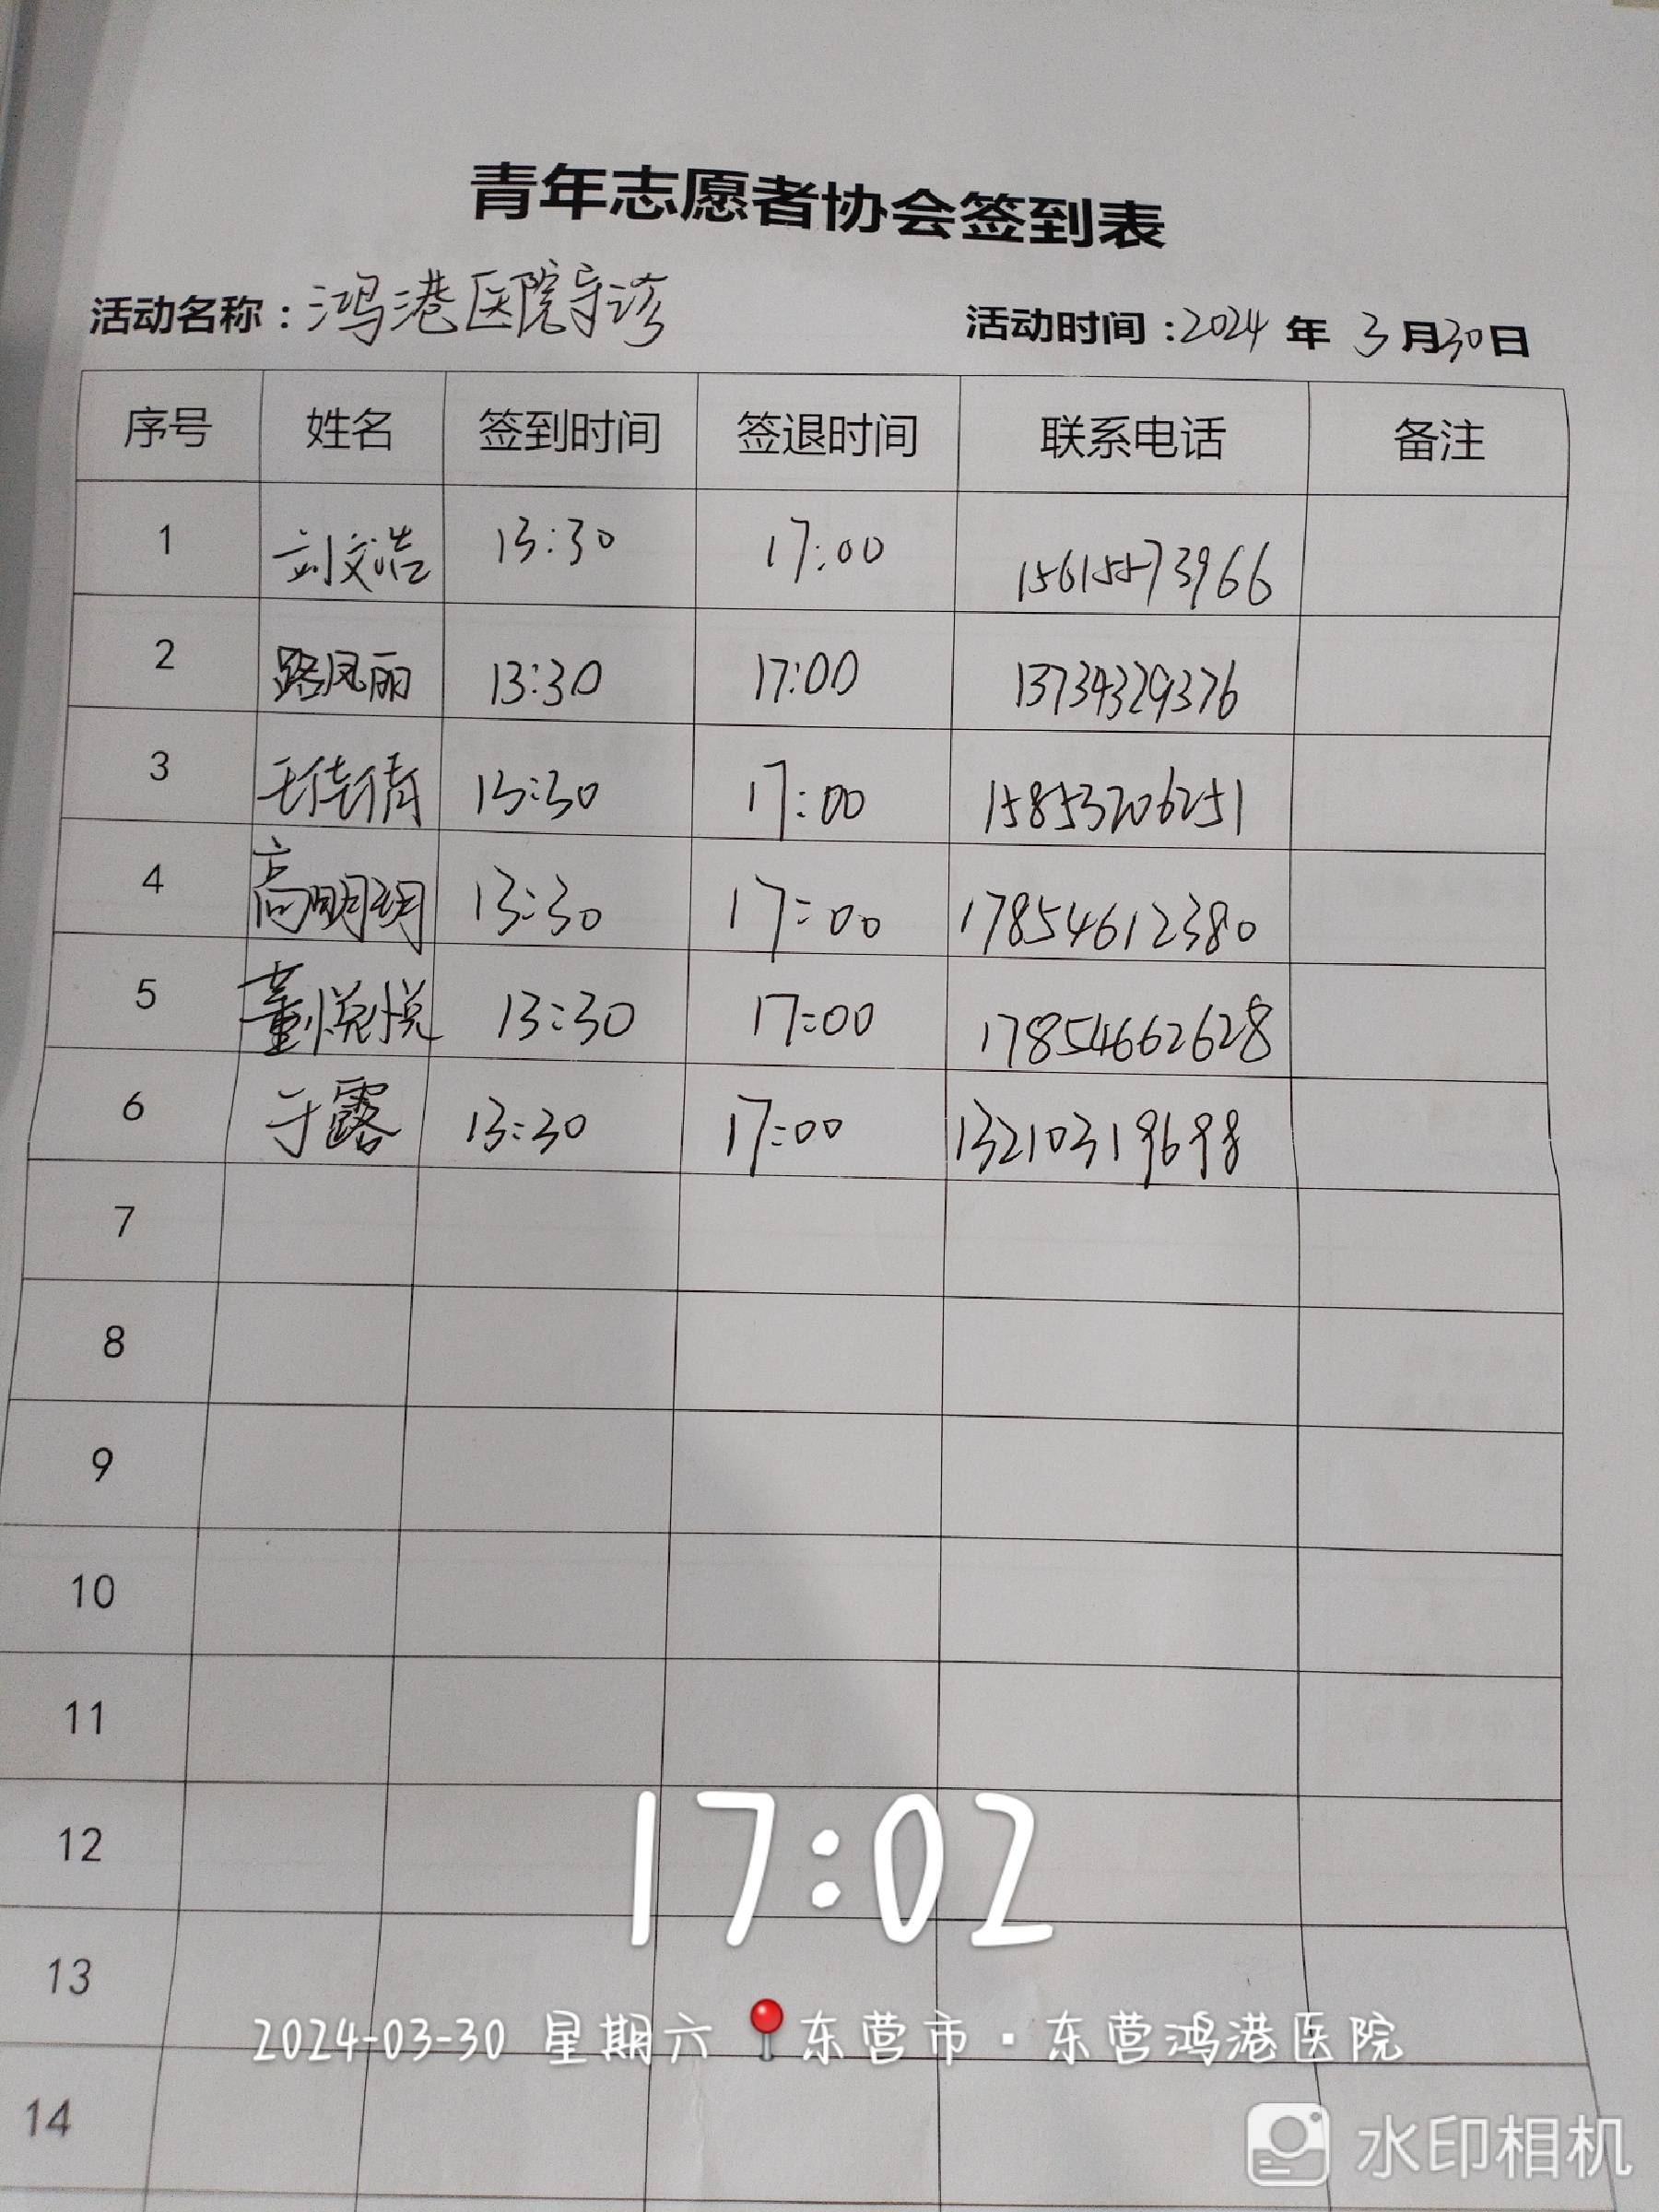 青年志愿者协会签到表
活动名称：鸿港医院导诊 活动时间：2024年3月30日
序号 姓名 签到时间 签退时间 联系电话 备注
1 刘文浩 13:30 17:00 15615573966
2 路凤丽 13:30 17:00 13734329376
3 王佳倩 13:30 17:00 15853206251
4 高明玥 13:30 17:00 17854612380
5 董悦悦 13:30 17:00 17854662628
6 于露 13:30 17:00 13210319698
7
8
9
10
11
12
17:02
13
2024-03-30 星期六 东营市·东营鸿港医院
14
水印相机